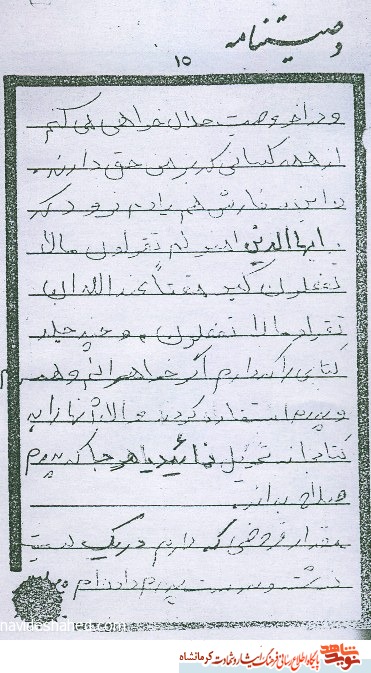 وصیتنامه
۱۵
و در آخر وصیت حلال خواهی می کنم
از همه کسانی که بر من حق دارند.
و این سفارش هم یادم نرود که
یا ایها الذین امنو لم تقولون مالا
تفعلون کبر مقتاً عند الله ان
تقولو مالا تفعلون. و چند جلد
کتابی را که دارم اگر خواهرانم و
و پدرم استفاده کردند والا آنها را به
کتابخانه تحویل نمائید یا هر جا که پدرم
صلاح بداند.
مقدار قروضی که دارم در یک لیست
پدرم داده‌ام
navideshahed.com
نوید شاهد
پایگاه اطلاع رسانی فرهنگ ایثار و شهادت کرمانشاه